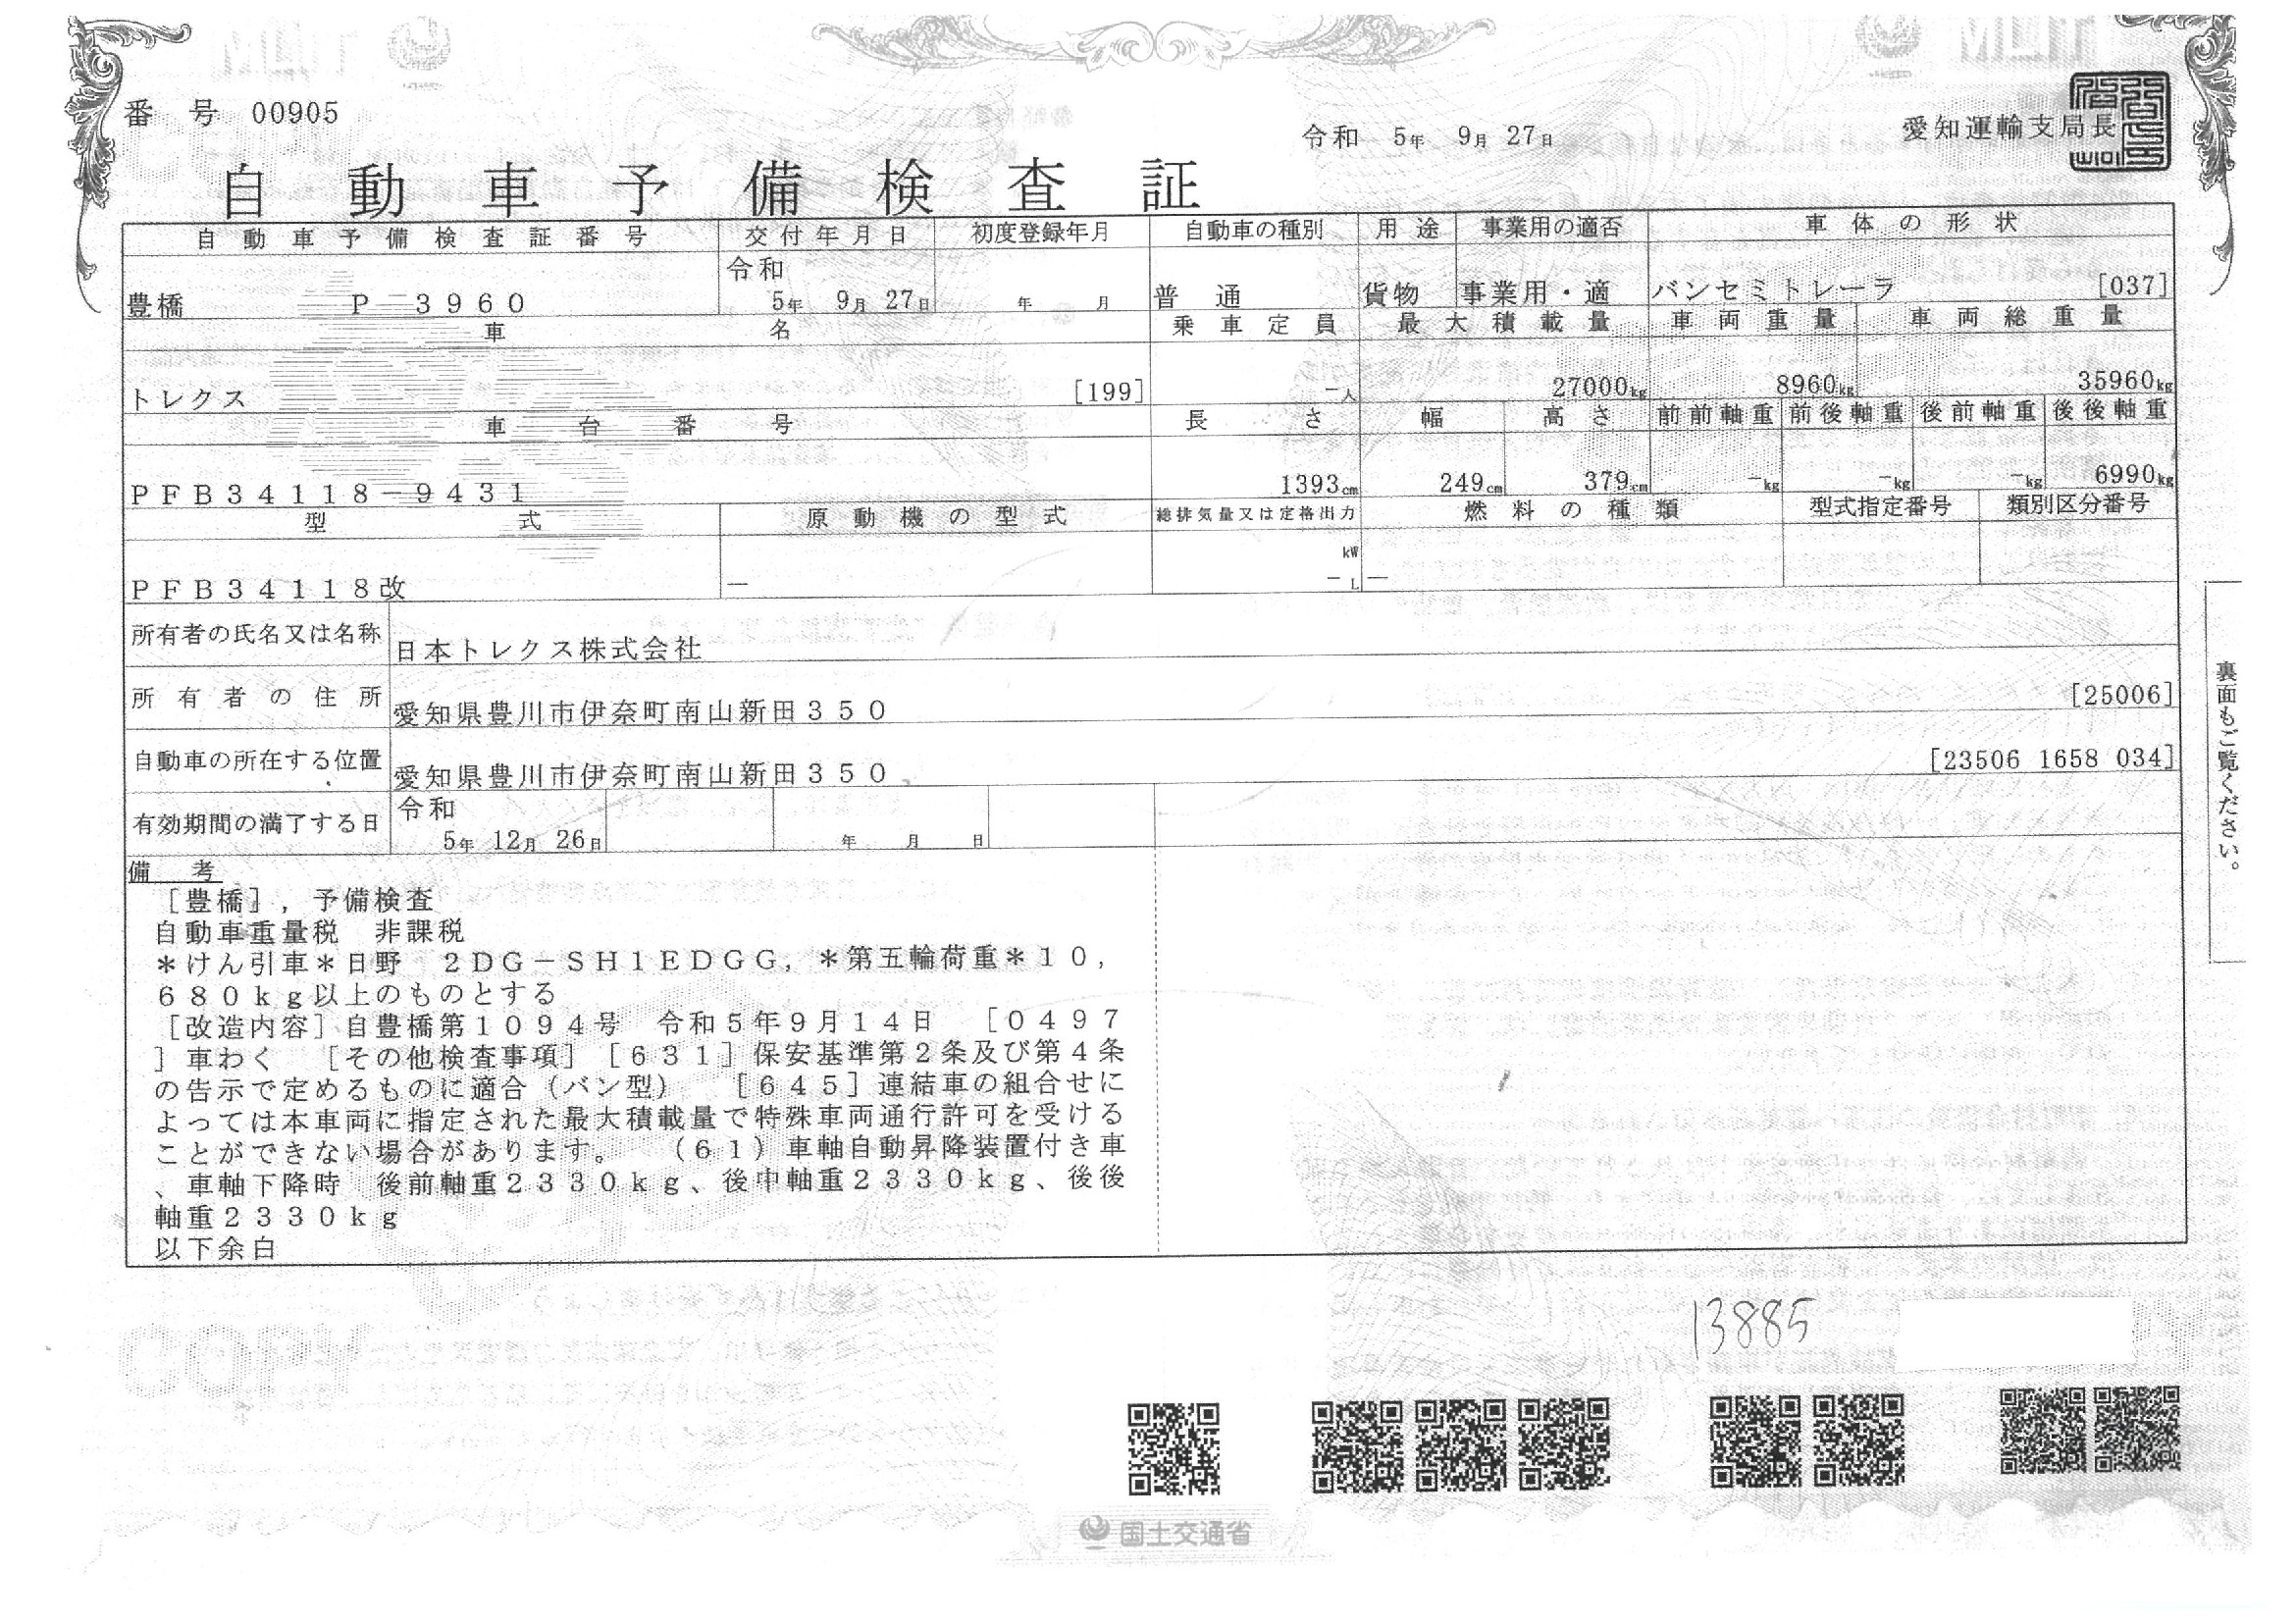 番 号 00905
令和 5年 9月 27日
愛知運輸支局長
自動車予備検査証
自動車予備検査証番号 交付年月日 初度登録年月 自動車の種別 用途 事業用の適否 車体の形状
豊橋 P-3960 令和 5年 9月 27日 年 月 普通 貨物 事業用・適 バンセミトレーラ [037]
車名 乗車定員 最大積載量 車両重量 車両総重量
トレクス [199] -人 27000kg 8960kg 35960kg
車台番号 長さ 幅 高さ 前前軸重 前後軸重 後前軸重 後後軸重
PFB34118-9431 1393cm 249cm 379cm -kg -kg -kg 6990kg
型式 原動機の型式 総排気量又は定格出力 燃料の種類 型式指定番号 類別区分番号
PFB34118改 - kW - L -
所有者の氏名又は名称 日本トレクス株式会社
所有者の住所 愛知県豊川市伊奈町南山新田350 [25006]
自動車の所在する位置 愛知県豊川市伊奈町南山新田350 [23506 1658 034]
有効期間の満了する日 令和 5年 12月 26日 年 月 日
備考
[豊橋],予備検査
自動車重量税 非課税
*けん引車*日野 2DG-SH1EDGG,*第五輪荷重*10,
680kg以上のものとする
[改造内容]自豊橋第1094号 令和5年9月14日 [0497
]車わく [その他検査事項][631]保安基準第2条及び第4条
の告示で定めるものに適合(バン型) [645]連結車の組合せに
よっては本車両に指定された最大積載量で特殊車両通行許可を受ける
ことができない場合があります。 (61)車軸自動昇降装置付き車
、車軸下降時 後前軸重2330kg、後中軸重2330kg、後後
軸重2330kg
以下余白
裏面もご覧ください。
13885
COPY
国土交通省